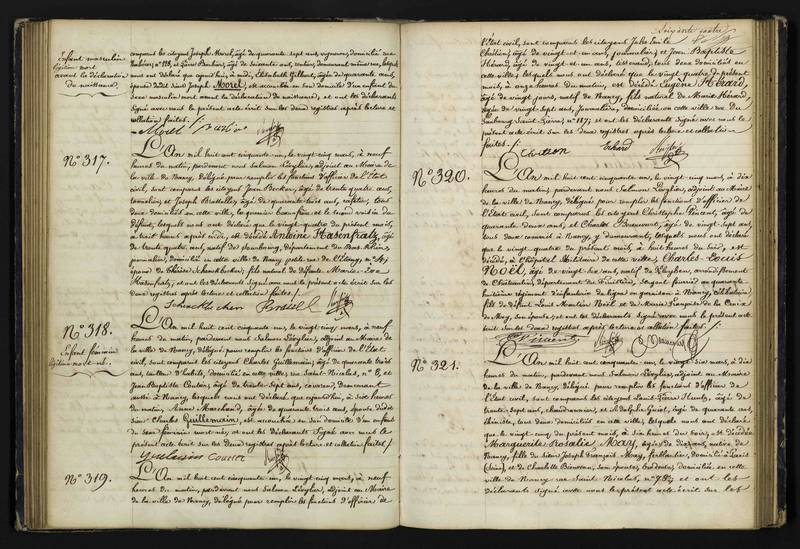 Enfant masculin
légitime mort
avant la déclaration
de naissance.
comparus les citoyens Joseph Morel, âgé de quarante sept ans, vigneron, domicilié rue
âgé de soixante ans, rentier, demeurant même rue, lesquels
nous ont déclaré que aujourd'hui, à midi, Elisabeth Gilbert, âgée de quarante ans,
épouse dudit sieur Joseph Morel, est accouchée en son domicile d'un enfant du
sexe masculin mort avant la déclaration de naissance, et ont les déclarants
signé avec nous le présent acte écrit sur les deux registres après lecture et
collation faites./.
Morel
N° 317.
L'An mil huit cent cinquante un, le vingt cinq mars, à neuf
heures du matin, pardevant nous Salmon Lévylier, adjoint au Maire de
la ville de Nancy, délégué pour remplir les fonctions d'officier de l'Etat
civil, sont comparus les citoyens Jean Becker, âgé de trente quatre ans,
tonnelier, et Joseph âgé de quarante trois ans, cafetier, tous
deux domiciliés en cette ville, le premier beaufrère et le second voisin du
défunt, lesquels nous ont déclaré que le vingt quatre du présent mois,
à huit heures après midi, est décédé Antoine Hasenfratz, âgé
de trente quatre ans, natif de Strasbourg, département du Bas-Rhin,
journalier, domicilié en cette ville de Nancy petite rue de l'étang, n°
époux de Thérèse fils naturel de défunte Marie-Eve
Hasenfratz, et ont les déclarants signé avec nous le présent acte écrit sur les
deux registres après lecture et collation faites./.
N° 318.
Enfant féminin
légitime mort-né.
L'An mil huit cent cinquante un, le vingt cinq mars, à neuf
heures du matin, pardevant nous Salmon Lévylier, adjoint au Maire
de la ville de Nancy, délégué pour remplir les fonctions d'officier de l'Etat
civil, sont comparus les citoyens Charles Guillemain, âgé de quarante trois
ans, tailleur d'habits, domicilié en cette ville, rue Saint Nicolas, n° 6, et
Jean Baptiste âgé de trente sept ans, demeurant
aussi à Nancy, lesquels nous ont déclaré que aujourd'hui, à six heures
du matin, Anne Marchand, âgée de quarante trois ans, épouse dudit
sieur Charles Guillemain, est accouchée en son domicile d'un enfant
du sexe féminin mort-né, et ont les déclarants signé avec nous le
présent acte écrit sur les deux registres après lecture et collation faites./.
N° 319.
L'An mil huit cent cinquante un, le vingt cinq mars, à neuf
heures du matin, pardevant nous Salmon Lévylier, adjoint au Maire
de la ville de Nancy, délégué pour remplir les fonctions d'officier de
Soixante quatre
l'Etat civil, sont comparus les citoyens Jules Emile
Chrétien, âgé de vingt et un ans, journalier, et Jean Baptiste
Hérard, âgé de vingt et un ans, tisserand, tous deux domiciliés en
cette ville; lesquels nous ont déclaré que le vingt quatre du présent
mois, à onze heures du matin, est décédé Eugène Hérard,
âgé de vingt jours, natif de Nancy, fils naturel de Marie Hérard,
âgée de vingt sept ans, journalière, domiciliée en cette ville rue du
faubourg Saint Pierre, n° 177, et ont les déclarants signé avec nous le
présent acte écrit sur les deux registres après lecture et collation
faites./.
N° 320.
L'An mil huit cent cinquante un, le vingt cinq mars, à dix
heures du matin, pardevant nous Salmon Lévylier, adjoint au Maire
de la ville de Nancy, délégué pour remplir les fonctions d'officier de
l'Etat civil, sont comparus les citoyens Christophe âgé de
quarante deux ans, et Charles âgé de vingt sept ans,
tous deux à Nancy, y demeurant, lesquels nous ont déclaré
que le vingt quatre du présent mois, à huit heures du soir, est
décédé, à l'hôpital Militaire de cette ville, Charles-Louis
Noël, âgé de vingt six ans, natif de arrondissement
de Châteaulin, département du Finistère, sergent fourrier au quarante
huitième régiment d'infanterie de ligne en garnison à Nancy, célibataire,
fils de défunt Louis Martin Noël et de Marie Françoise
et ont les déclarants signé avec nous le présent acte
écrit sur les deux registres après lecture et collation faites./.
N° 321.
L'An mil huit cent cinquante un, le vingt six mars, à dix
heures du matin, pardevant nous Salmon Lévylier, adjoint au Maire
de la ville de Nancy, délégué pour remplir les fonctions d'officier de
l'Etat civil, sont comparus les citoyens Louis Pierre âgé de
trente sept ans, chaudronnier, et Adolphe âgé de quarante ans,
ébéniste, tous deux domiciliés en cette ville; lesquels nous ont déclaré
que le vingt cinq du présent mois, à six heures du soir, est décédée
Marguerite Rosalie May, âgée de dix ans, native de
Nancy, fille du sieur Joseph François May, ferblantier, domicilié à Paris
(Seine), et de Charlotte son épouse, domiciliée en cette
ville de Nancy rue Saint Nicolas, n° et ont les
déclarants signé avec nous le présent acte écrit sur les